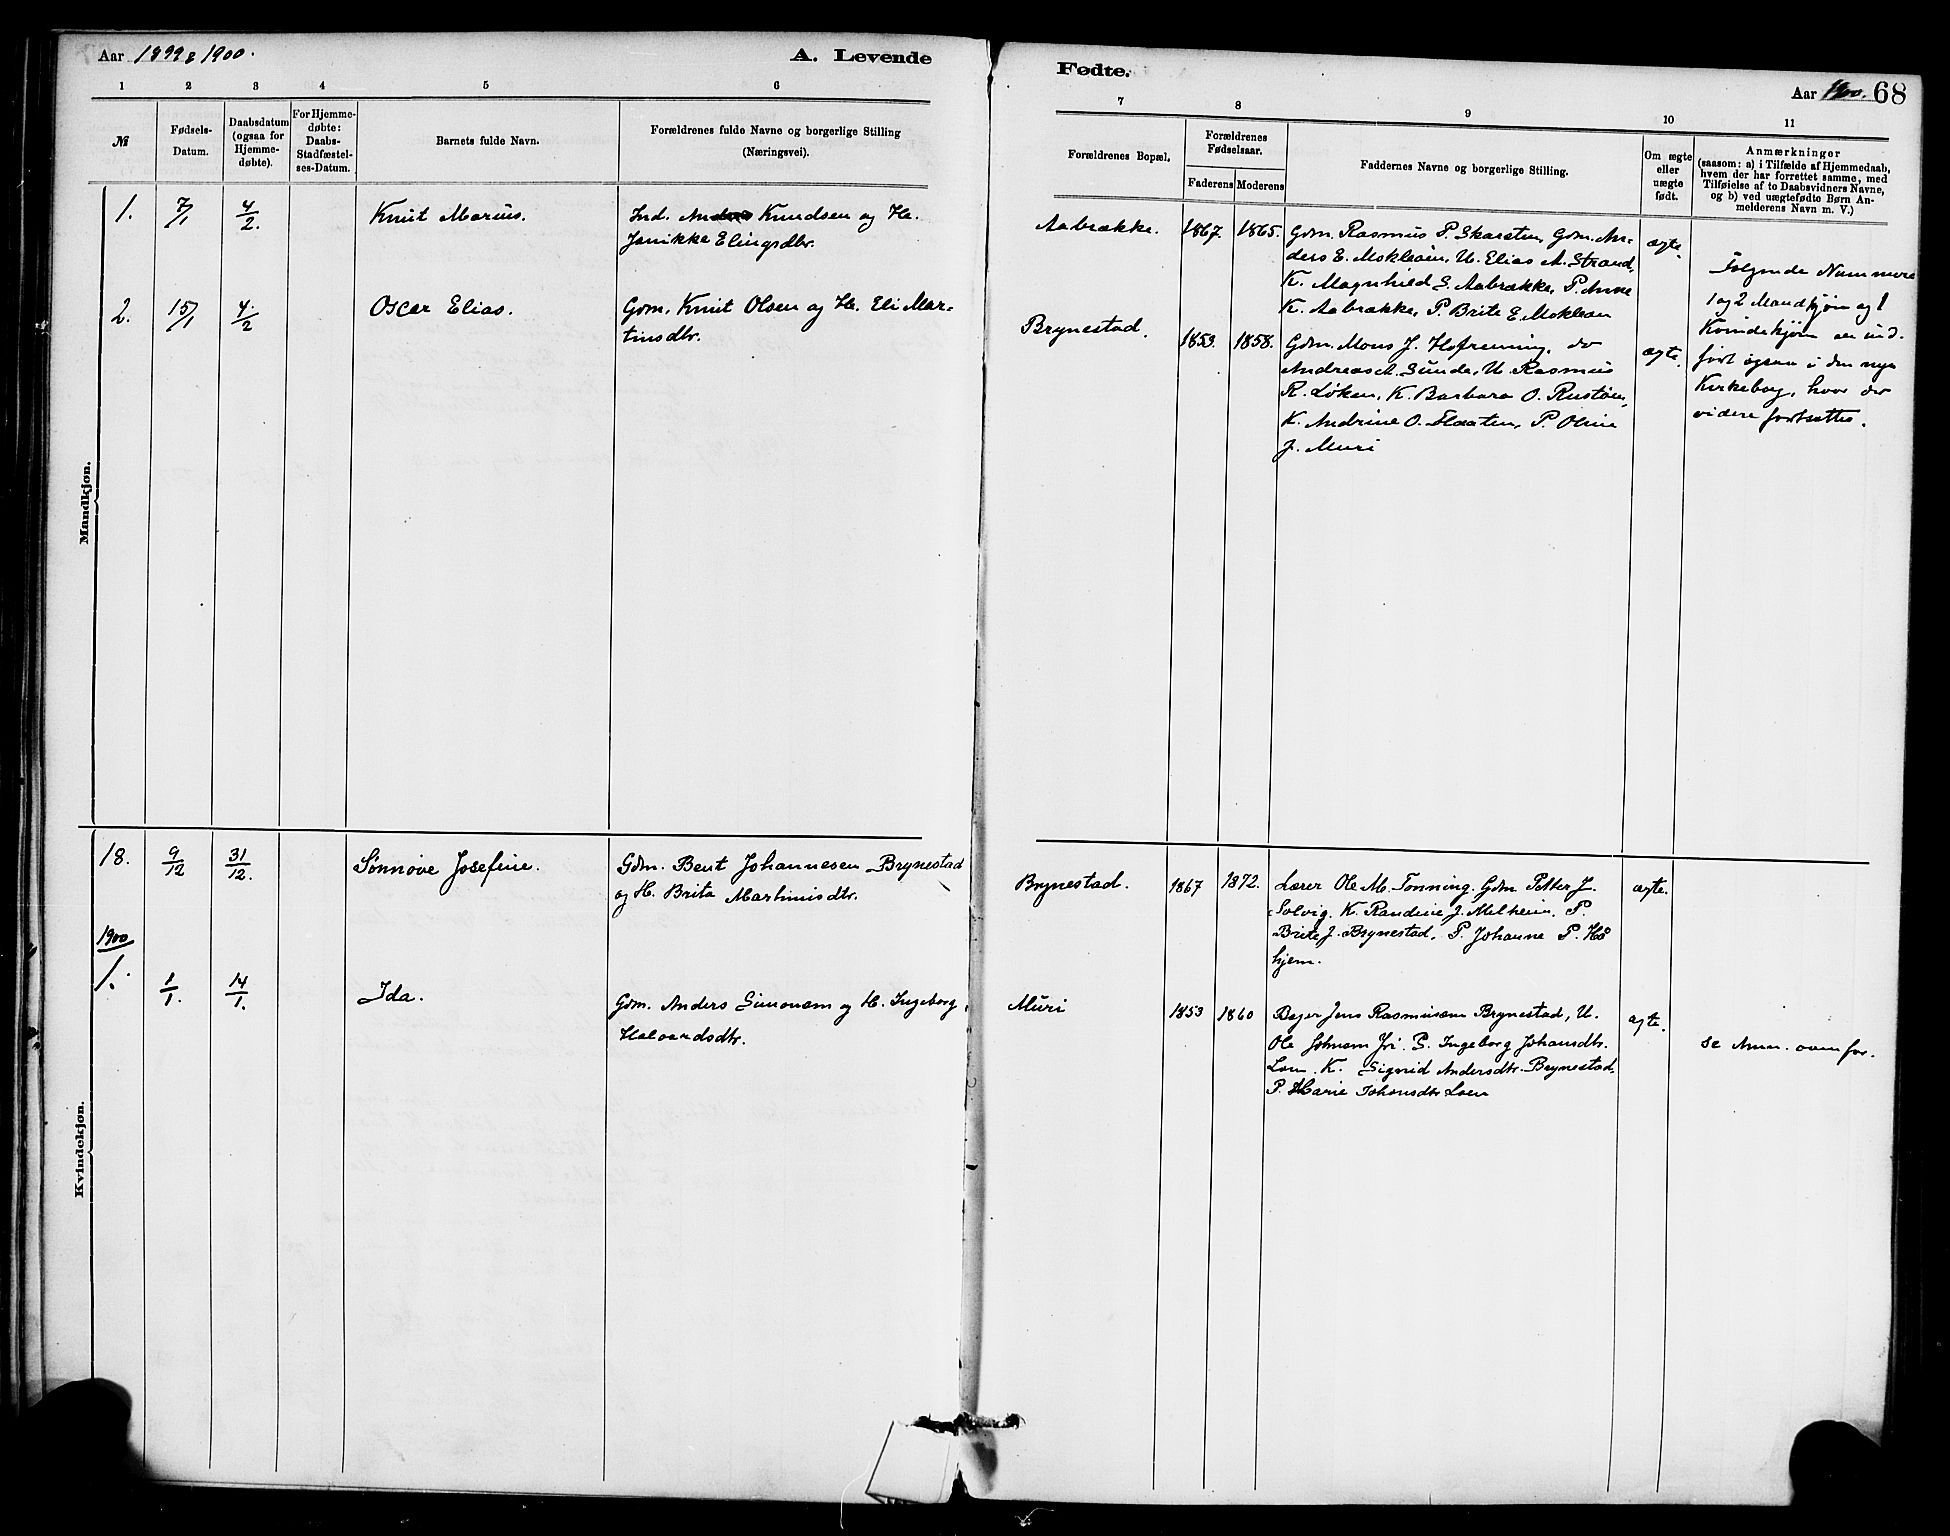 Aar 1899 & 1900.
A. Levende
Fødte.
Aar 1900. 68
1 2 3 4 5 6
7 8 9 10 11
№
Fødsels-
Datum.
Daabsdatum
(ogsaa for
Hjemme-
døbte).
For Hjemme-
døbte:
Daabs-
Stadfæstel-
ses-Datum.
Barnets fulde Navn.
Forældrenes fulde Navne og borgerlige Stilling
(Næringsvei).
Forældrenes Bopæl.
Forældrenes
Fødselsaar.
Faderens Moderens
Faddernes Navne og borgerlige Stilling.
Om ægte
eller
uægte
født.
Anmærkninger
(saasom: a) i Tilfælde af Hjemmedaab,
hvem der har forrettet samme, med
Tilføielse af to Daabsvidners Navne,
og b) ved uægtefødte Børn An-
melderens Navn m. V.)
Mandkjøn.
1. 7/1 4/2. Knut Marius.
Ind. Knudsen og H.
Janikke Elingsdtr.
Aabrække. 1867. 1865.
Gdm. Rasmus P. Skarsten, Gdm. An-
ders E. Mokleøien, U. Elias A. Strand,
K. Magnhild S. Aabrække, P. Anne
K. Aabrække, P. Brite E. Mokleøen
ægte.
Følgende Nummere
1 og 2 Mandkjøn og 1
Kvindekjøn er ind-
ført ogsaa i den nye
Kirkebog, hvor der
videre fortsættes.
2. 15/1 4/2 Oscar Elias.
Gdm. Knut Olsen og H. Eli Mar-
tinsdtr.
Brynestad. 1859. 1858.
Gdm. Mons J. Hofrenning, do
Andreas A. Sunde, U. Rasmus
R. Løken, K. Barbara O. Rustøen,
K. Andrine O. Flaaten, P. Oline
J. Muri
ægte.
Kvindekjøn.
18. 9/12 31/12. Sønnøve Josefine.
Gdm. Bent Johannesen Brynestad
og H. Brita Martinusdtr.
Brynestad. 1867 1872.
Lærer Ole M. Tonning. Gdm Petter J.
Solvig. K. Randine J. Melheim. P.
Brite J. Brynestad. P. Johanne P. Hø
hjem.
ægte.
1900
1. 1/1. 14/1. Ida.
Gdm. Anders Simonsen og H. Ingeborg
Halvardsdtr.
Muri 1853 1860
Jens Rasmussen Brynestad, U.
Ole Johnsen Fri. P. Ingeborg Johansdtr.
Loen. K. Signid Andersdtr. Brynestad.
P. Marie Johansdtr Loen
ægte.
se Anm. ovenfor.